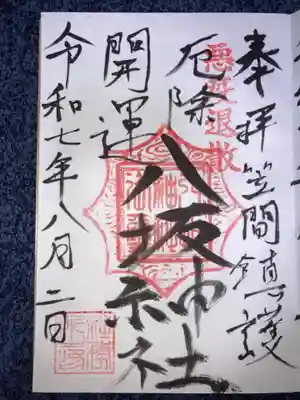 奉拝
笠間鎮護
悪疫退散
厄除
開運
八坂神社
令和七年八月二日